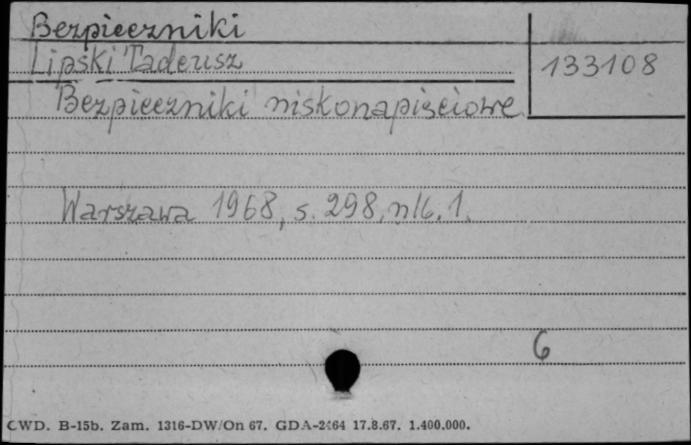 Bezpieczniki
Lipski Tadeusz
133108
Bezpieczniki niskonapięciowe
Warszawa 1968, s. 298, nlb. 1.
6
CWD. B-15b. Zam. 1316-DW/On 67. GDA-2464 17.8.67. 1.400.000.